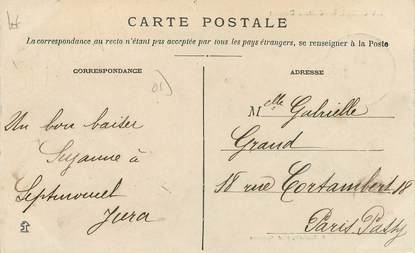 CARTE POSTALE
La correspondance au recto n'étant pas acceptée par tous les pays étrangers, se renseigner à la Poste
CORRESPONDANCE
Un bon baiser
Suzanne à
Septmoncel
Jura
ADRESSE
Melle Gabrielle
Grand
18 rue Cortambert 18
Paris Passy